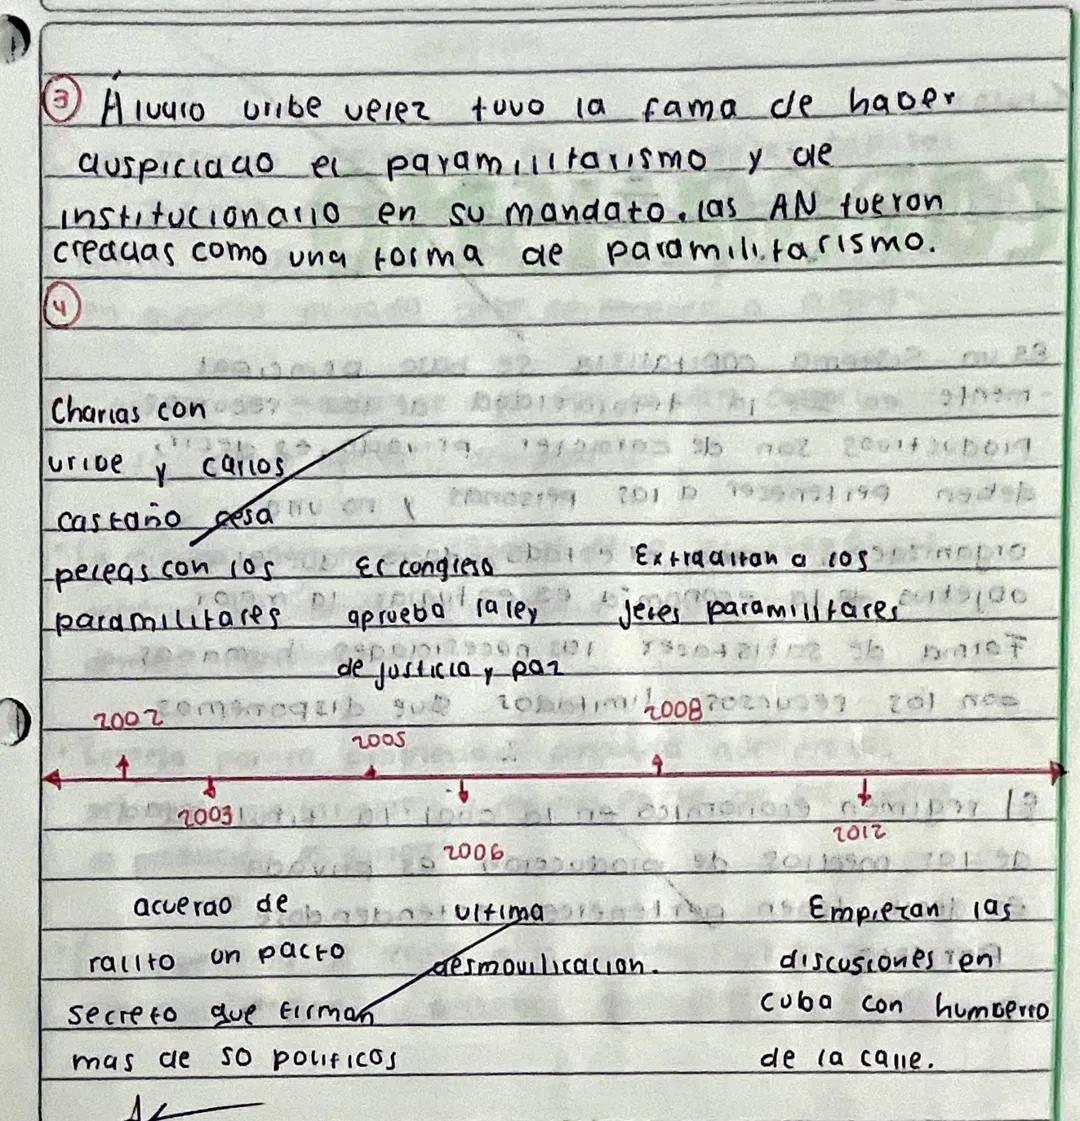 3 Álvaro uribe velez tuvo la fama de haber
auspiciado el paramilitarismo y de
institucionario en su mandato. las AN fueron
creadas como una forma de paramilitarismo.
4
Charlas con
uribe y carlos
castaño cesa
peleas con los
paramilitares
El congreso
aprueba la ley
de justicia y paz
Extraditan a los
jefes paramilitares
2002
2005
2008
2003
2006
2012
acuerdo de
ralito un pacto
secreto que firman
mas de 50 politicos
ultima
desmovilicacion.
Empiezan las
discusiones en
cuba con humberto
de la calle.